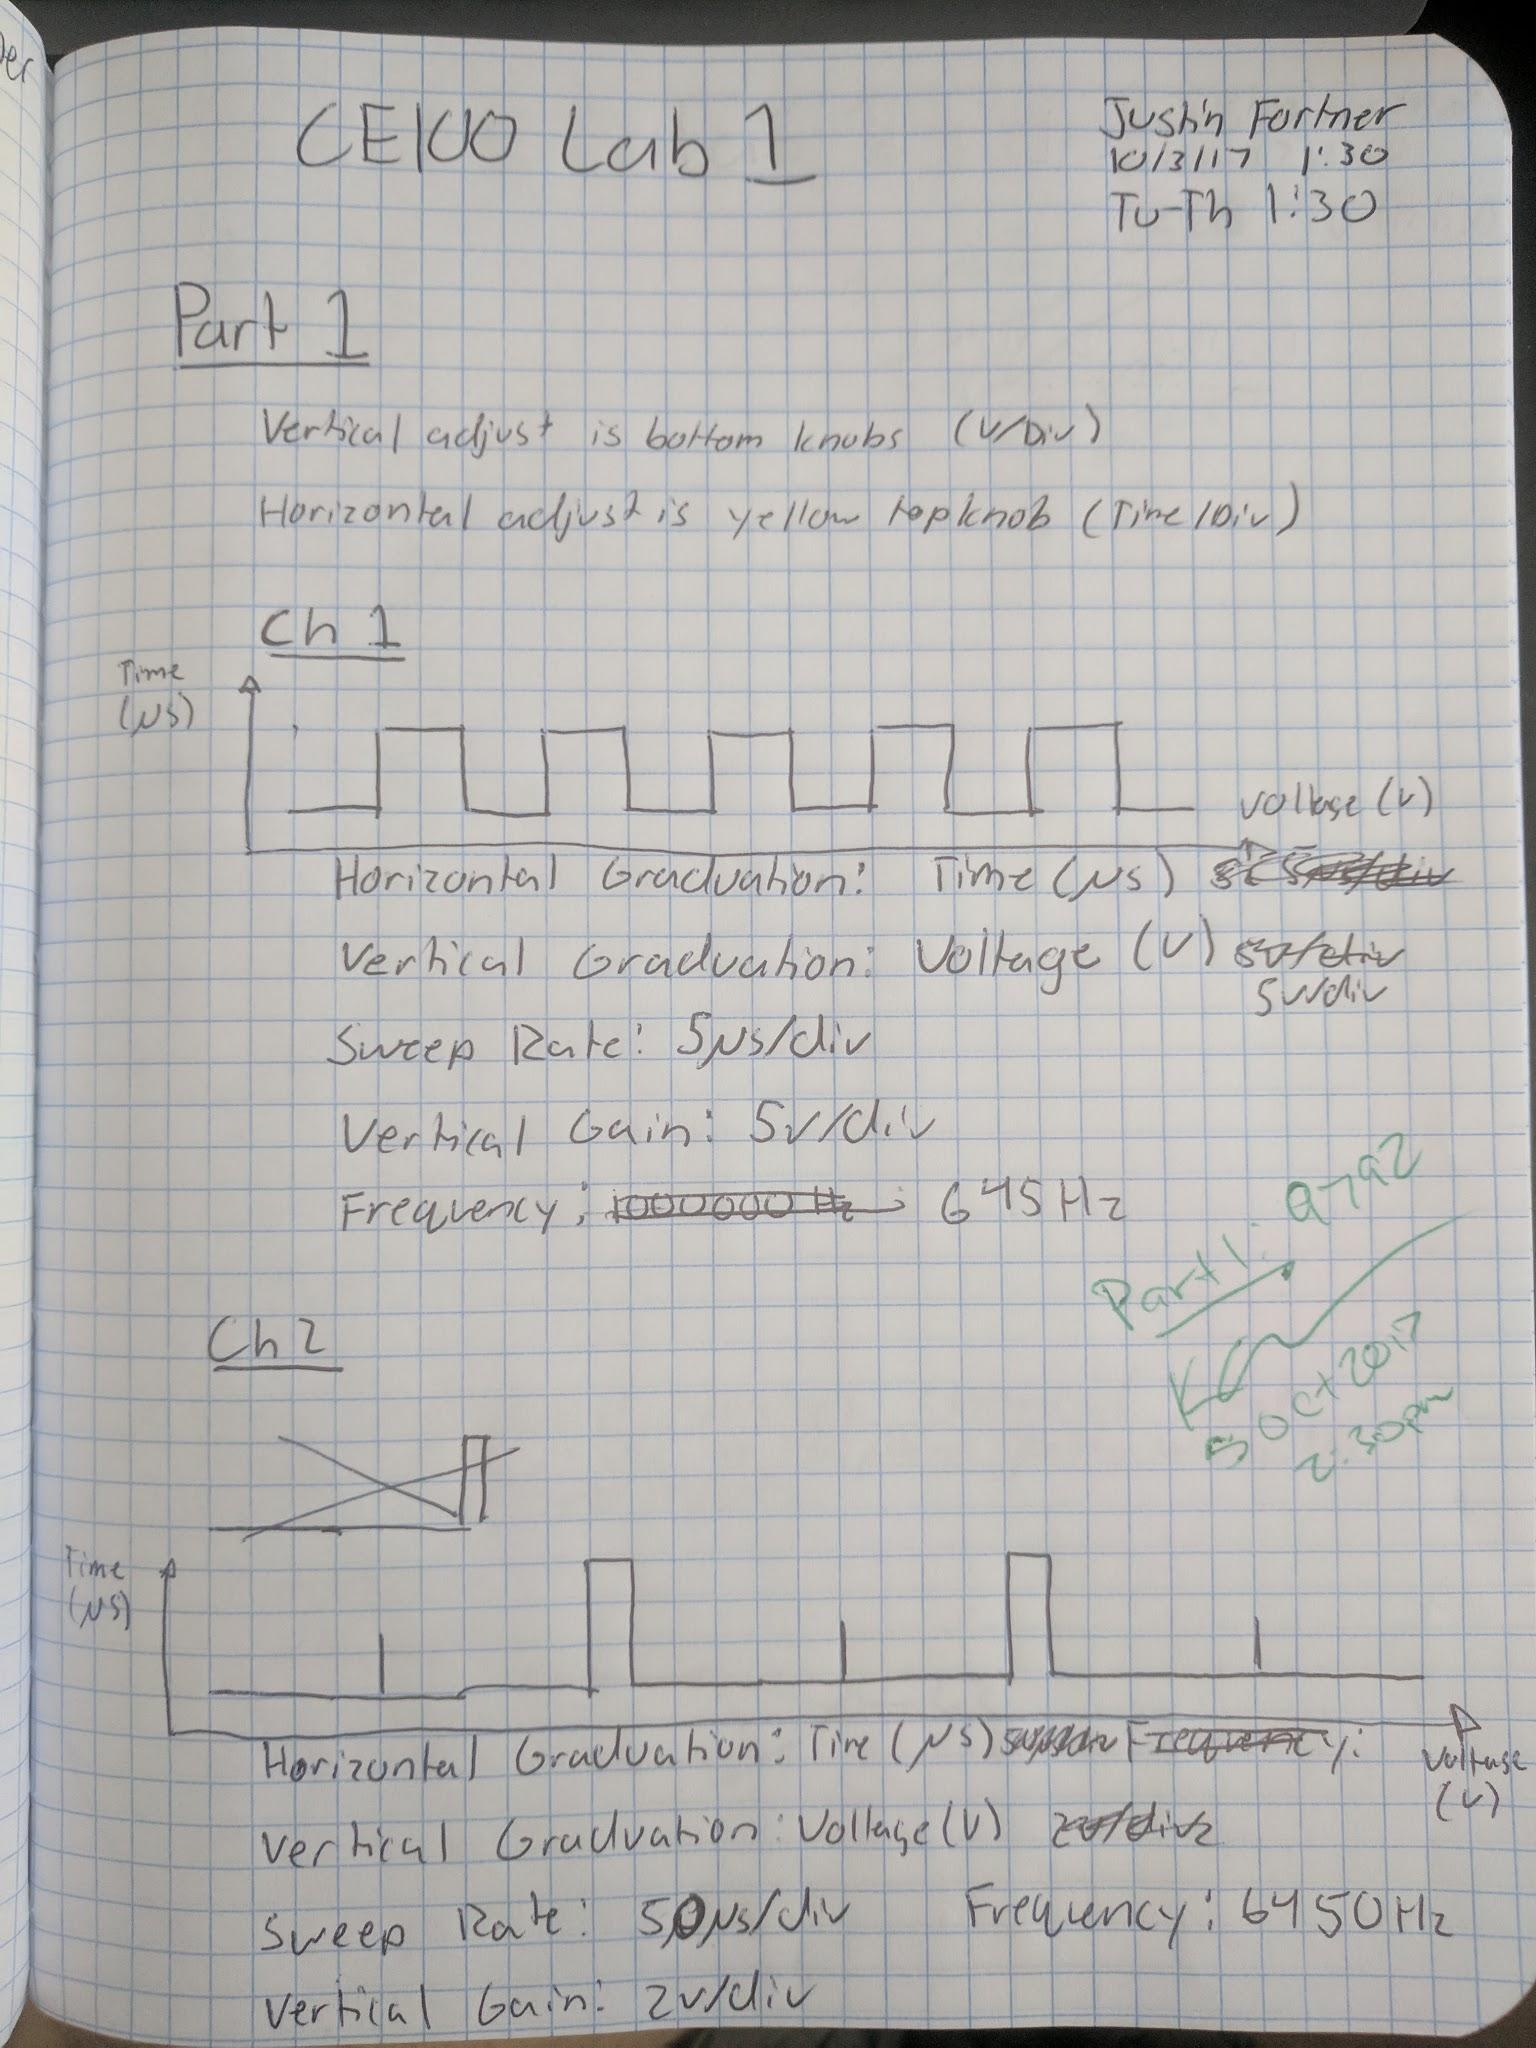 CE100 Lab 1
Justin Fortner
10/3/17 1:30
Tu-Th 1:30
Part 1
Vertical adjust is bottom knobs (V/Div)
Horizontal adjust is yellow top knob (Time/Div)
Ch 1
Time
(μs)
Voltage (V)
Horizontal Graduation: Time (μs)
Vertical Graduation: Voltage (V) 5v/div
5v/div
Sweep Rate: 5μs/div
Vertical Gain: 5v/div
Frequency: 1000000 Hz 645 Hz
Part 1.
3 Oct 2017
2:30pm
Ch 2
Time
(μs)
Voltage
(V)
Horizontal Graduation: Time (μs) Frequency:
Vertical Graduation: Voltage (V) 2v/div
Sweep Rate: 50μs/div Frequency: 6450Hz
Vertical Gain: 2v/div